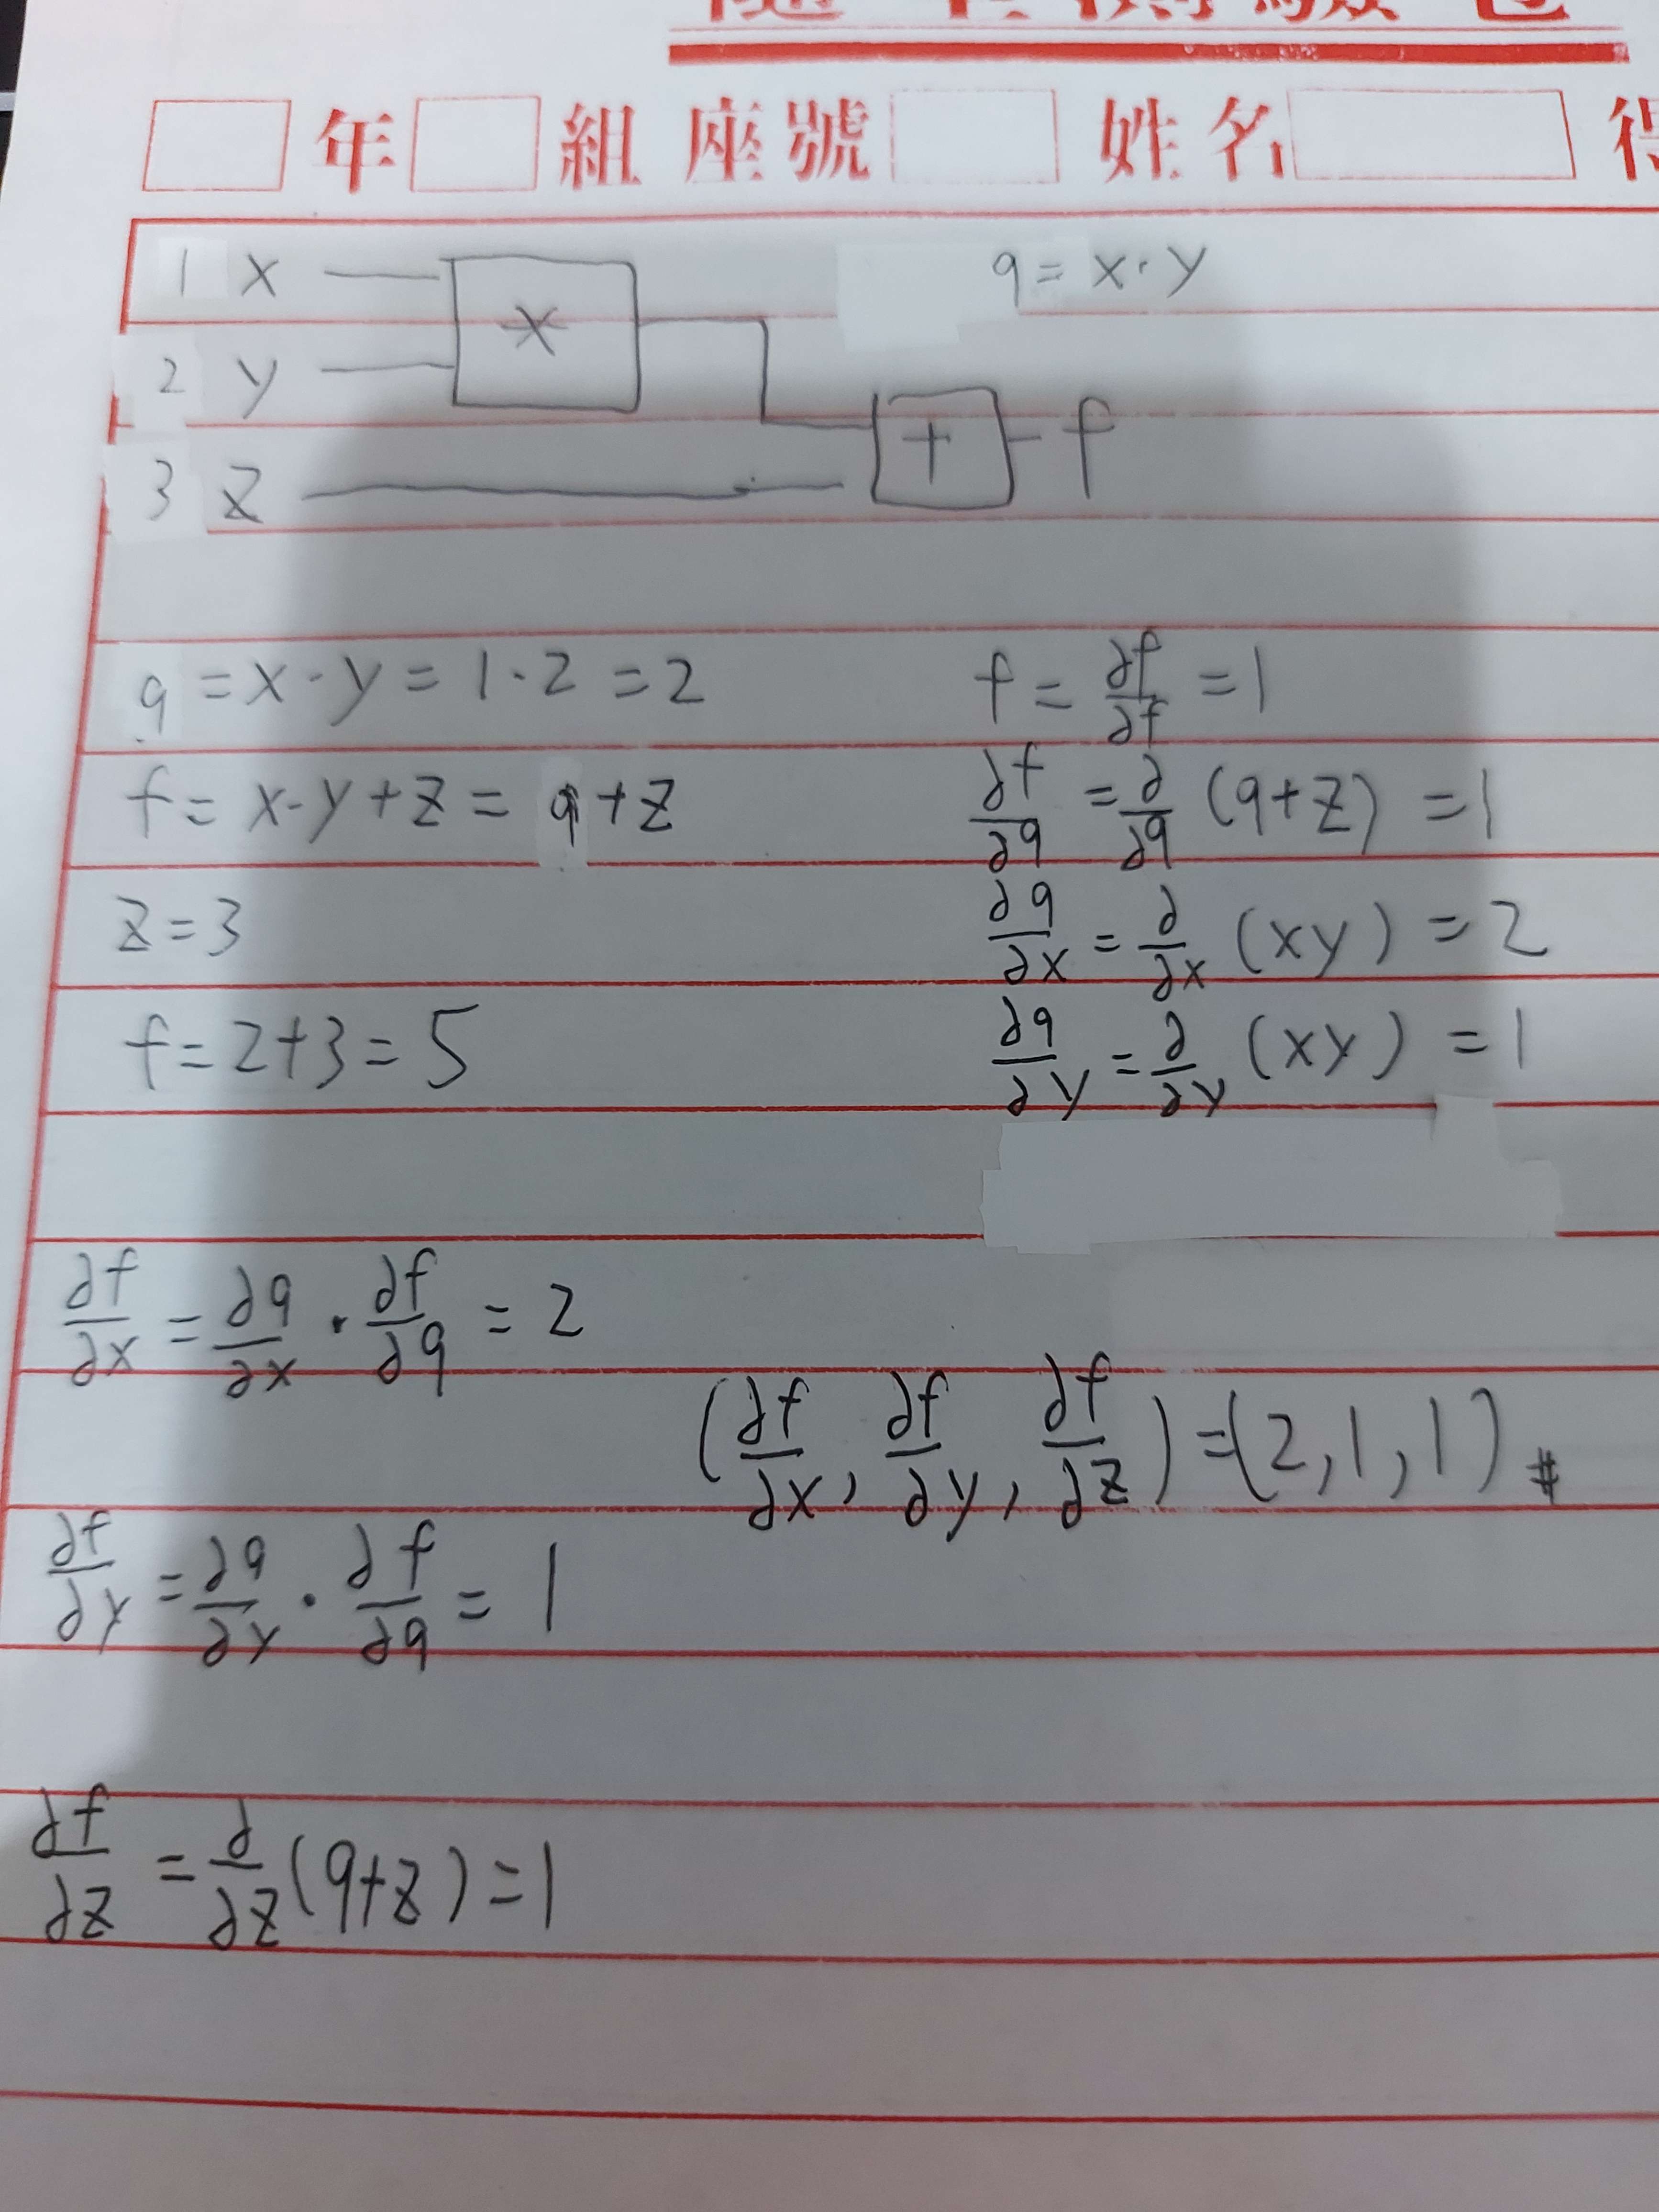 年 組 座號 姓名
1 x × q = x · y
2 y
+ f
3 z
q = x · y = 1 · 2 = 2
f = x · y + z = q + z
z = 3
f = 2 + 3 = 5
f = ∂f/∂f = 1
∂f/∂q = ∂/∂q (q + z) = 1
∂q/∂x = ∂/∂x (xy) = 2
∂q/∂y = ∂/∂y (xy) = 1
∂f/∂x = ∂q/∂x · ∂f/∂q = 2
(∂f/∂x, ∂f/∂y, ∂f/∂z) = (2, 1, 1) #
∂f/∂y = ∂q/∂y · ∂f/∂q = 1
∂f/∂z = ∂/∂z (q + z) = 1